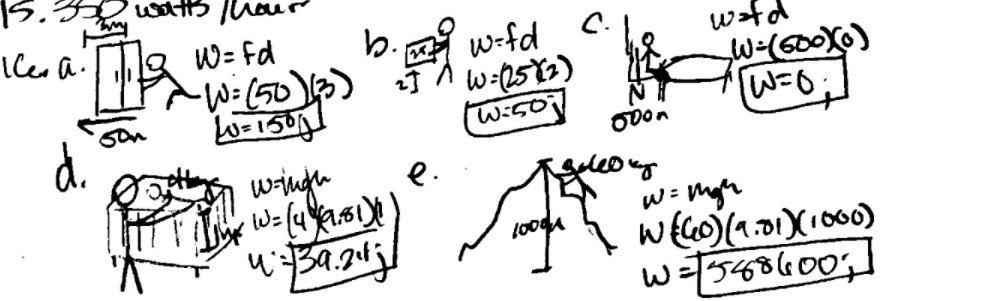 15. 350 watts / hour
3m
a.
W = fd
W = (50)(3)
W = 150j
50n
b.
W = fd
W = (25)(2)
W = 50j
c.
W = fd
W = (600)(0)
W = 0j
N
d.
W = mgh
W = (4)(9.81)(1)
= 39.24j
e.
60 kg
1000m
W = mgh
W = (60)(9.81)(1000)
W = 588600j